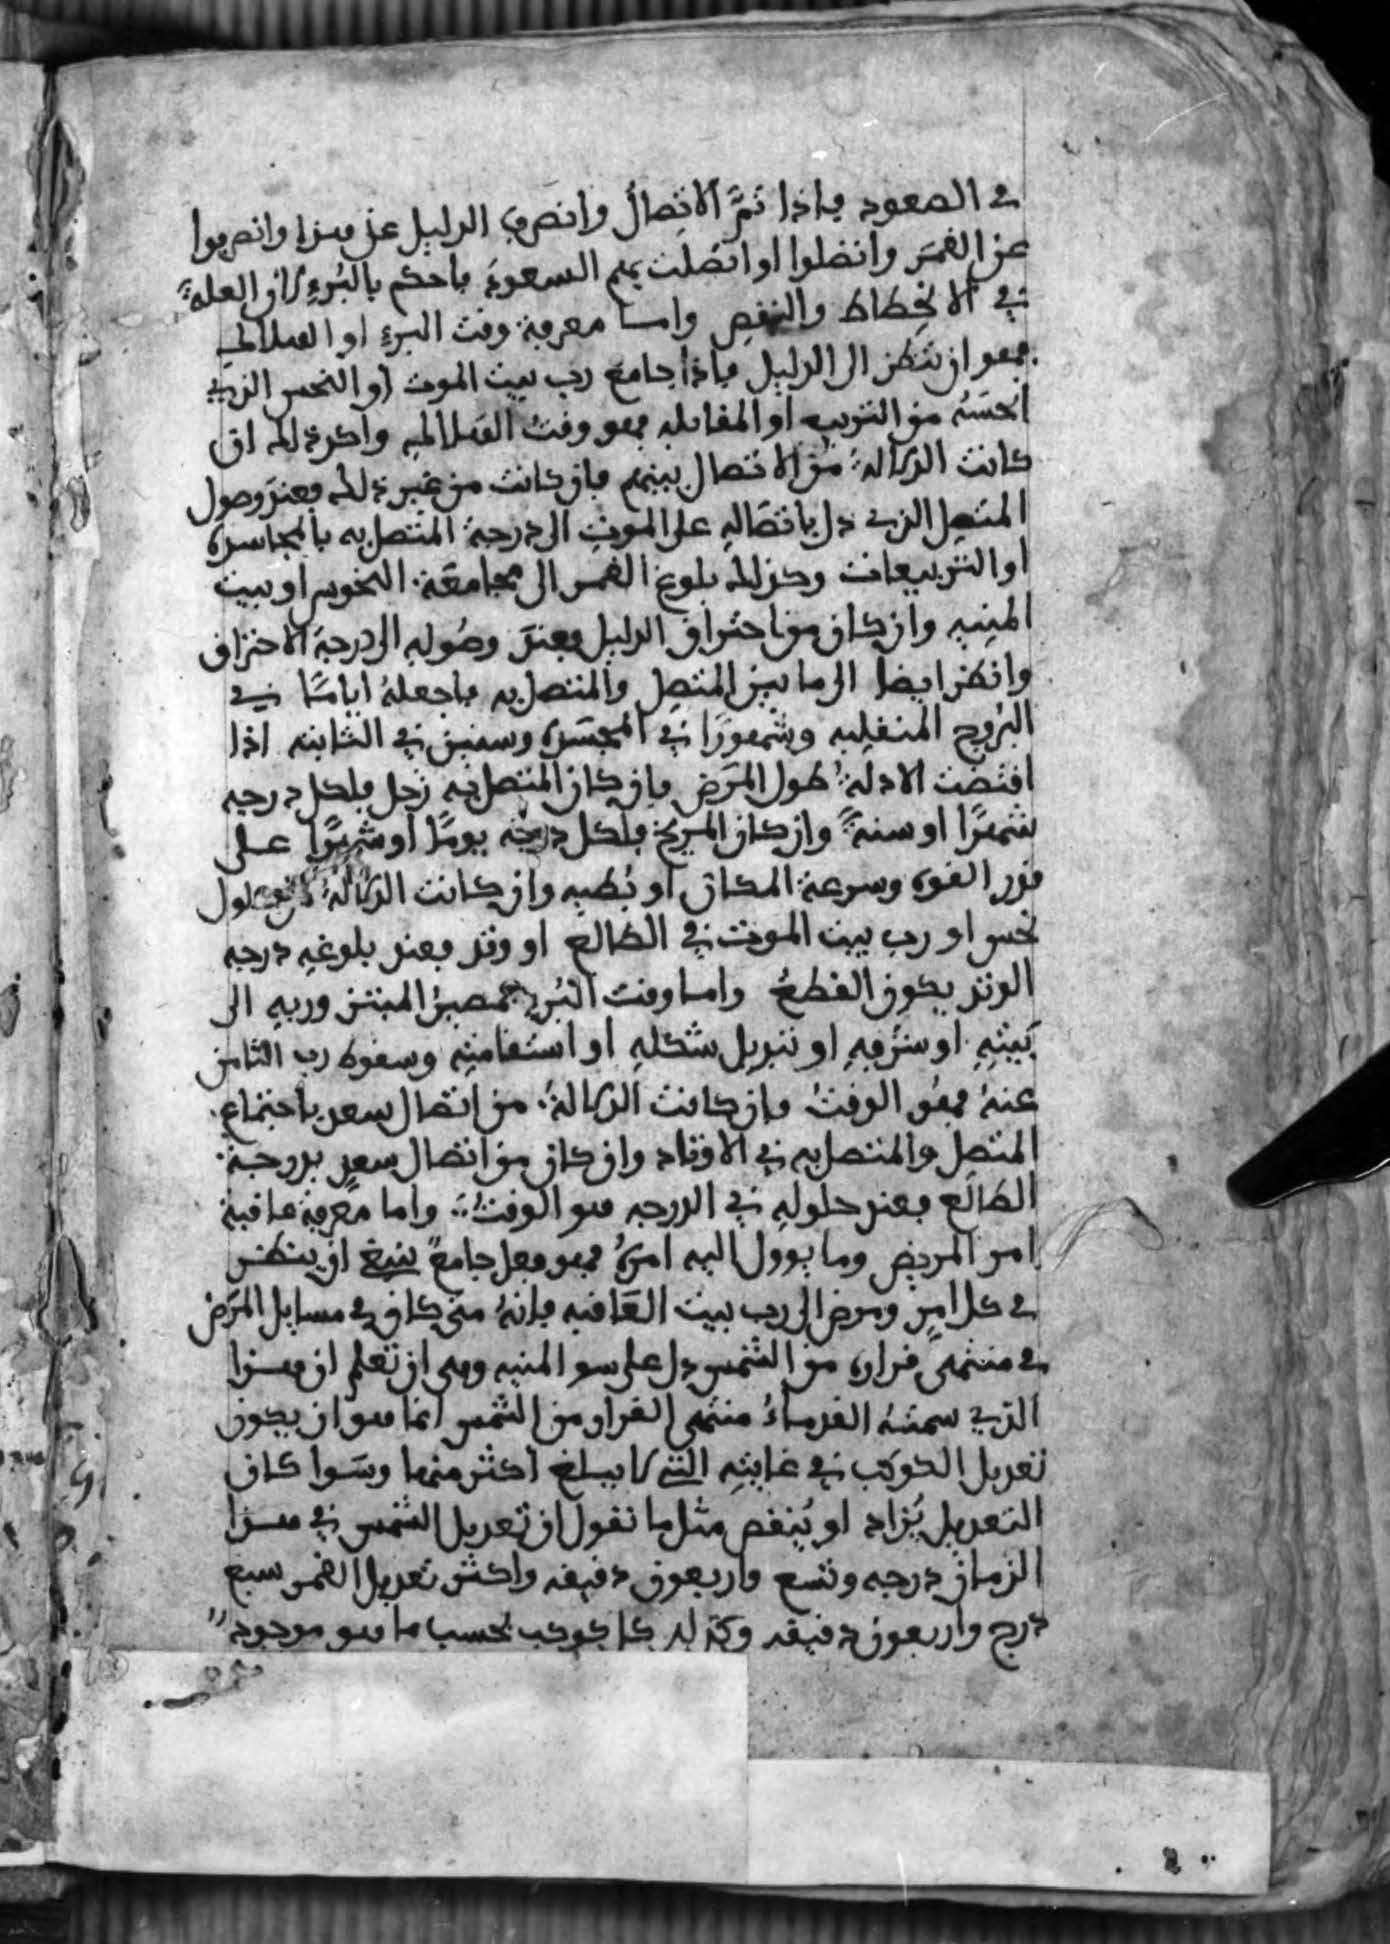 في الصعود فاذا تمَّ الاتصالُ وانصرف الدليل عن هذا وانصرفوا
عن القمر واتصلوا او اتصلت بهم السعود فاحكم بالبُرءِ لان العلةً
في الانحِطاط والنقص واما معرفة وقت البرءِ او الهلاك
فهو ان تنظر الى الدليل فاذا جامع رب بيت الموت او النحس الذي
انحسَهُ من التربيع او المقابله فهو وقتُ الهلاك فيه واكد ذلك ان
كانت الدلالةُ من الاتصال بينهم فان كانت من غير ذلك فعند وصول
المتصِل الذي دل باتصَالهِ على الموتِ الى درجة المتصل به بالمجاسدة
او التربيعات وكذلك بلوغ القمر الى مجامعَة النحوس او بيت
المنيه وان كان من احتراق الدليل فعندَ وصُوله الى درجة الاحتراق
وانظر ايضا الى ما بين المتصِل والمتصل به فاجعلهُ ايامًا في
البُروج المنقلبه وشهورًا في المجسَدة وسنين في الثابته اذا
اقتضت الادلةُ طول المرَض فان كان المتصل به زحل فلكل درجه
شهرًا او سنةً وان كان المريخ فلكل درجه يومًا او شهرًا على
قدر القوه وسرعة المكان او بُطيه وان كانت الدلالةُ من حلول
نحس او رب بيت الموت في الطالع او وتد فعند بلوغهِ درجه
الوتد يكون القطعُ واما وقت البُرء فمصيرُ المبتز وربهِ الى
بَيتِهِ او شرَفِهِ او تبديل شكلهِ او استقامتِهِ وسقوط رب الثامن
عنهُ فهو الوقتُ فان كانت الدلالةُ من اتصال سعد باجتماع
المتصِل والمتصل به في الاوتاد وان كان من اتصال سعدٍ بدرجة
الطالَع فعند حلولهِ في الدرجه هو الوقتُ واما معرفة عاقبة
امر المريض وما يوول اليه امرهُ فهو فعل جامعً ينبغ ان ينظر
في كل امرٍ ومرض الى رب بيت العَاقبه فانهُ متى كان في مسايل المرَض
في منتهَى فراره من الشمس دل على سو المنيه وهي ان تعلم ان هذا
الذي سمتهُ القدماءُ منتهى الفرار من الشمس انما هو ان يكون
تعديل الكوكب في غايتِهِ التي لا يبلغ اكثر منها وسَوا كان
التعديل يُزاد او يُنقص مثل ما نقول ان تعديل الشمس في هذا
الزمان درجه وتسع واربعون دقيقه واكثر تعديل القمر سبع
درج واربعون دقيقه وكذلك كل كوكب بحسب ما هو موجود